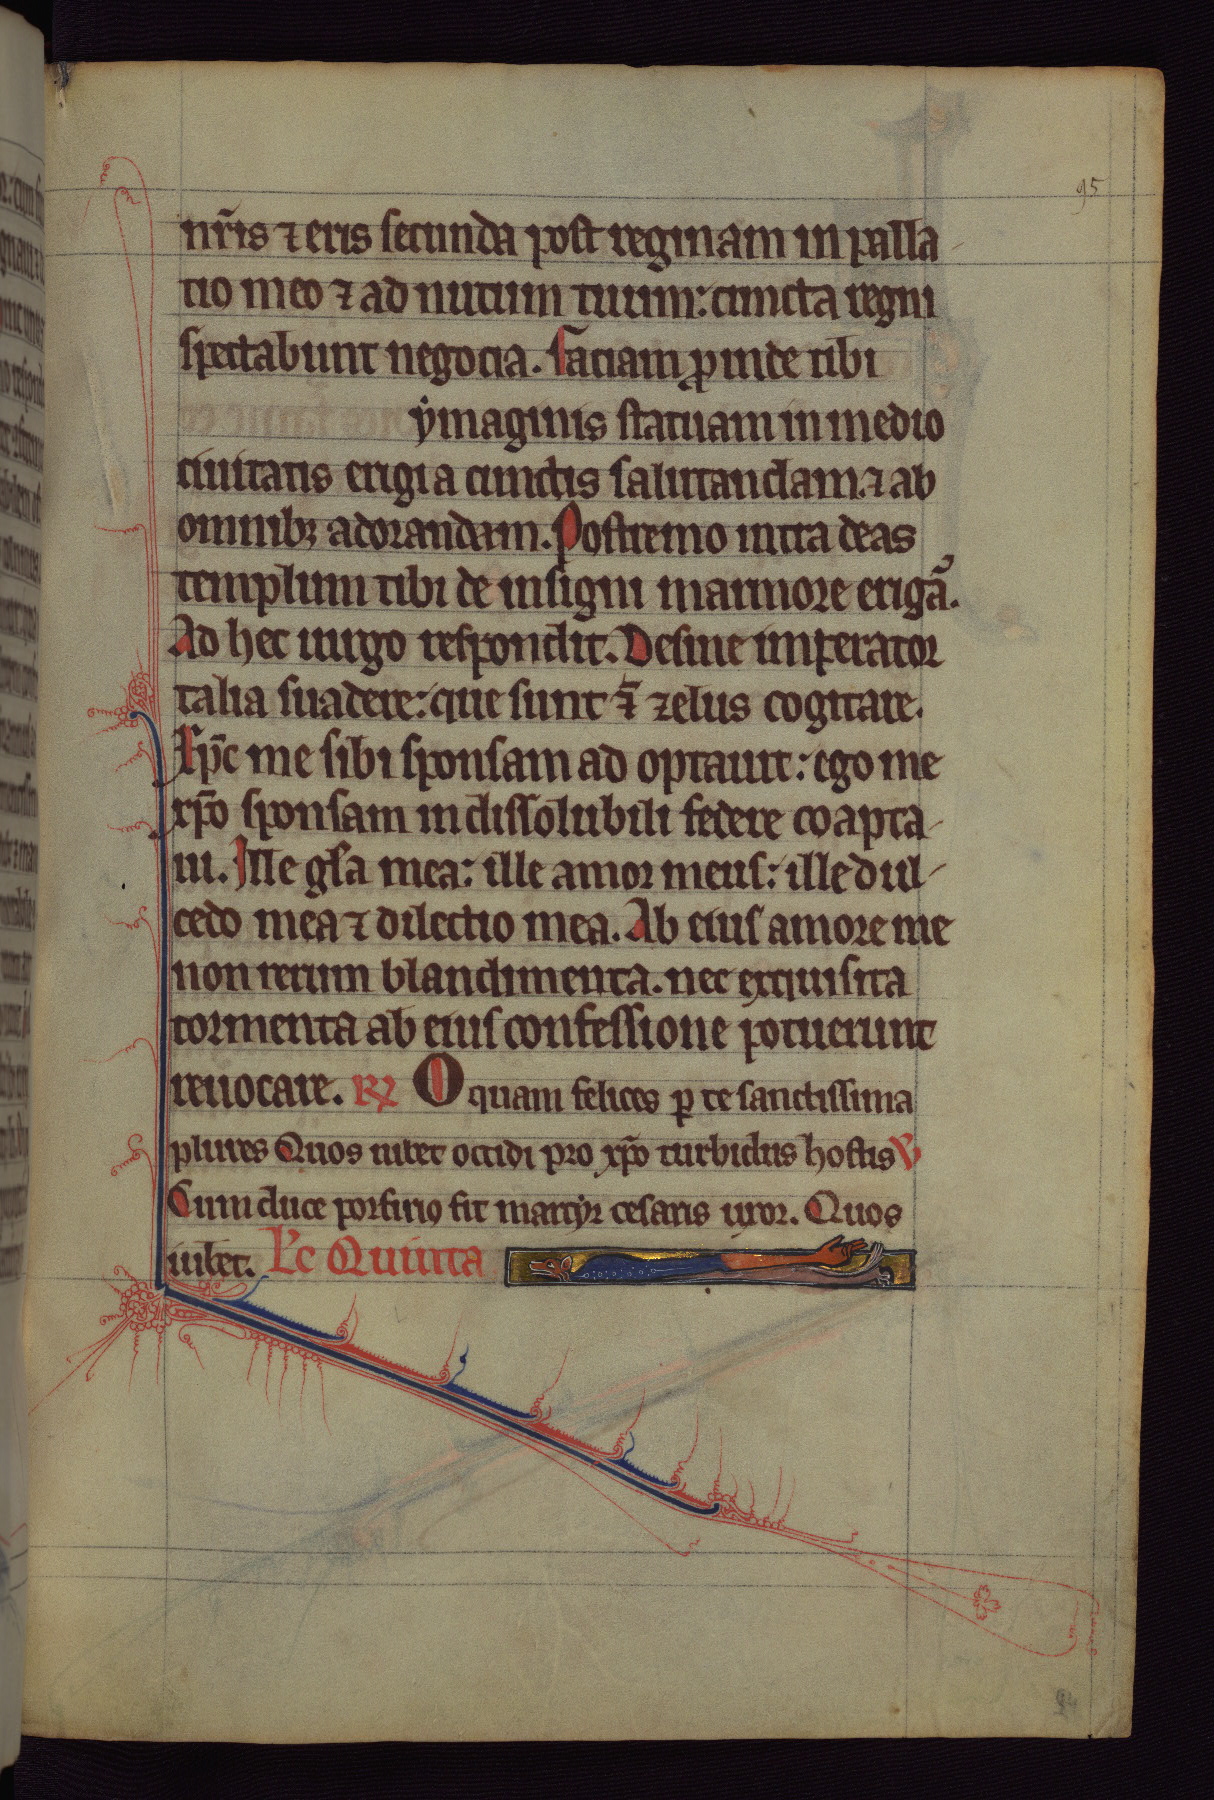 95
nr̃is ⁊ eris secunda post reginam in palla
tio meo ⁊ ad nutum tuum: cuncta regni
spectabunt negocia. Faciam ꝓinde tibi
ẏmaginis statuam in medio
ciuitatis erigi a cunctis salutandam ⁊ ab
omnibꝫ adorandam. Postremo intra deas
templum tibi de insigni marmore erigã.
Ad hec uirgo respondit. Desine imperator
talia suadere: que sunt ⁊̃ zelus cogitare.
Xp̃c me sibi sponsam ad optauit: ego me
xp̃o sponsam indissolubili federe coapta
ui. Ille gl̃a mea: ille amor meus: ille dul
cedo mea ⁊ dilectio mea. Ab eius amore me
non rerum blandimenta. nec exquisita
tormenta ab eius confessione potuerunt
reuocare. R̷ O quam felices ꝑ te sanctissima
plures Quos iubet occidi pro xp̃o turbidus hostis V̷
Cum duce porfirio fit martyr cesaris uxor. Quos
iubet. Lc̃ Quinta